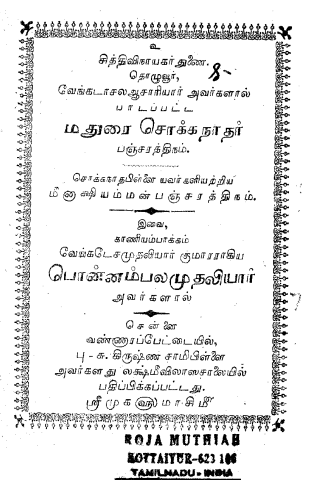 உ
சித்திவிநாயகர்துணை.
தொழுவூர்,
வேங்கடாசலஆசாரியார் அவர்களால்
பாடப்பட்ட
மதுரை சொக்கநாதர்
பஞ்சரத்திநம்.
சொக்கநாதபிள்ளை யவர்களியற்றிய
மீனாக்ஷியம்மன்பஞ்சரத்திநம்.
இவை,
காணியம்பாக்கம்
வேங்கடேசமுதலியார் குமாரராகிய
பொன்னம்பலமுதலியார்
அவர்களால்
சென்னை
வண்ணாரப்பேட்டையில்,
பு - சு. கிருஷ்ண சாமிபிள்ளை
அவர்களது லக்ஷ்மீவிலாஸசாலையில்
பதிப்பிக்கப்பட்டது.
ஸ்ரீமுகளுமாசிமீ
ROJA MUTHIAH
KOTTAIYUR-623 106
TAMILNADU - INDIA